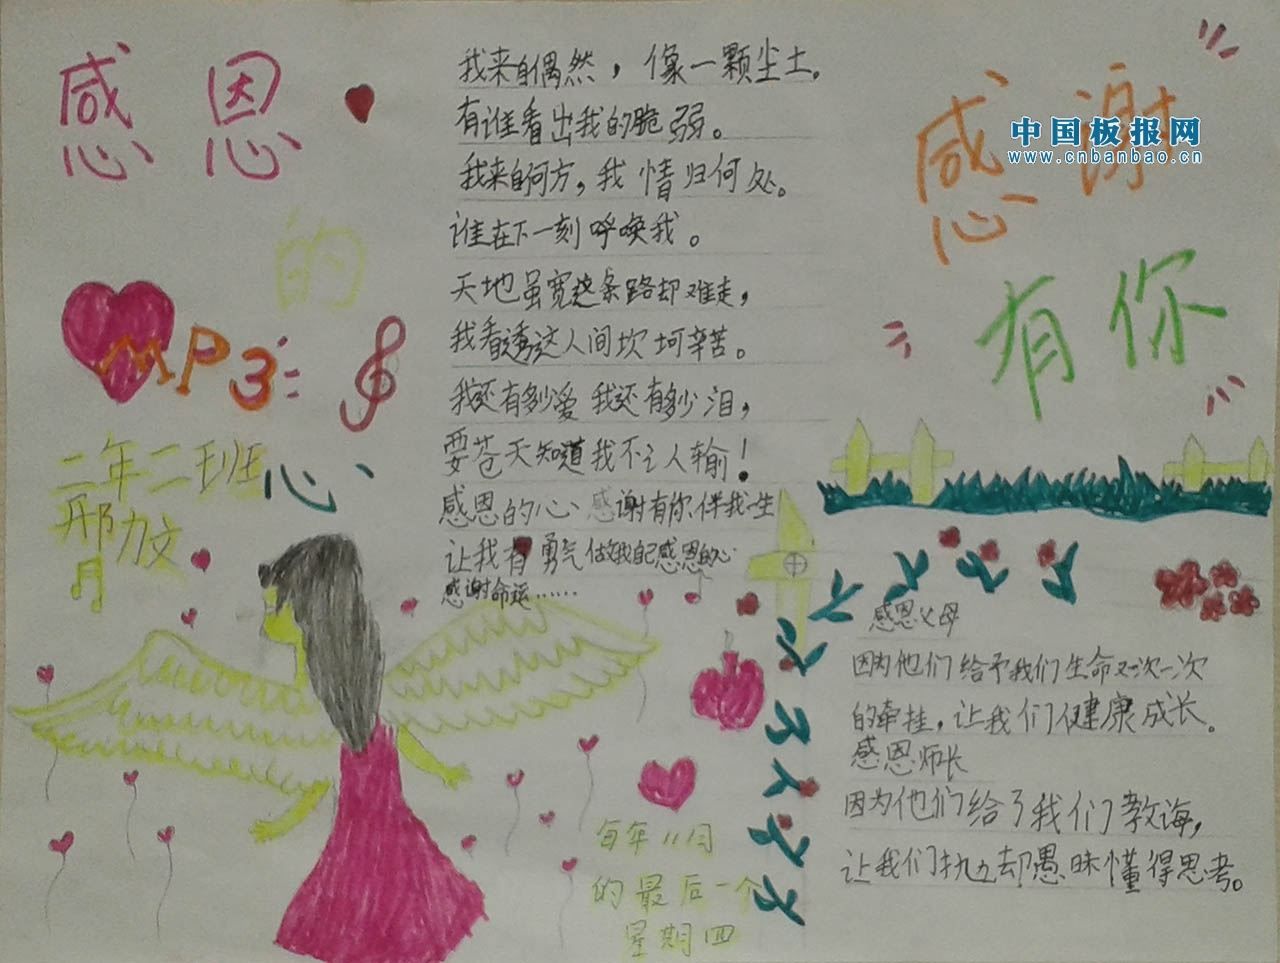 感恩
的
MP3
二年二班
邢力文
心
我来自偶然，像一颗尘土。
有谁看出我的脆弱。
我来自何方，我情归何处。
谁在下一刻呼唤我。
天地虽宽这条路却难走，
我看透这人间坎坷辛苦。
我还有多少爱 我还有多少泪，
要苍天知道我不认人输！
感恩的心 感谢有你伴我一生
让我有勇气做我自己感恩的心
感谢命运……
感谢
有你
中国板报网
www.cnbanbao.cn
感恩父母
因为他们给予我们生命 一次一次
的牵挂，让我们健康成长。
感恩师长
因为他们给了我们教诲，
让我们 却愚昧懂得思考。
每年11月
的最后一个
星期四